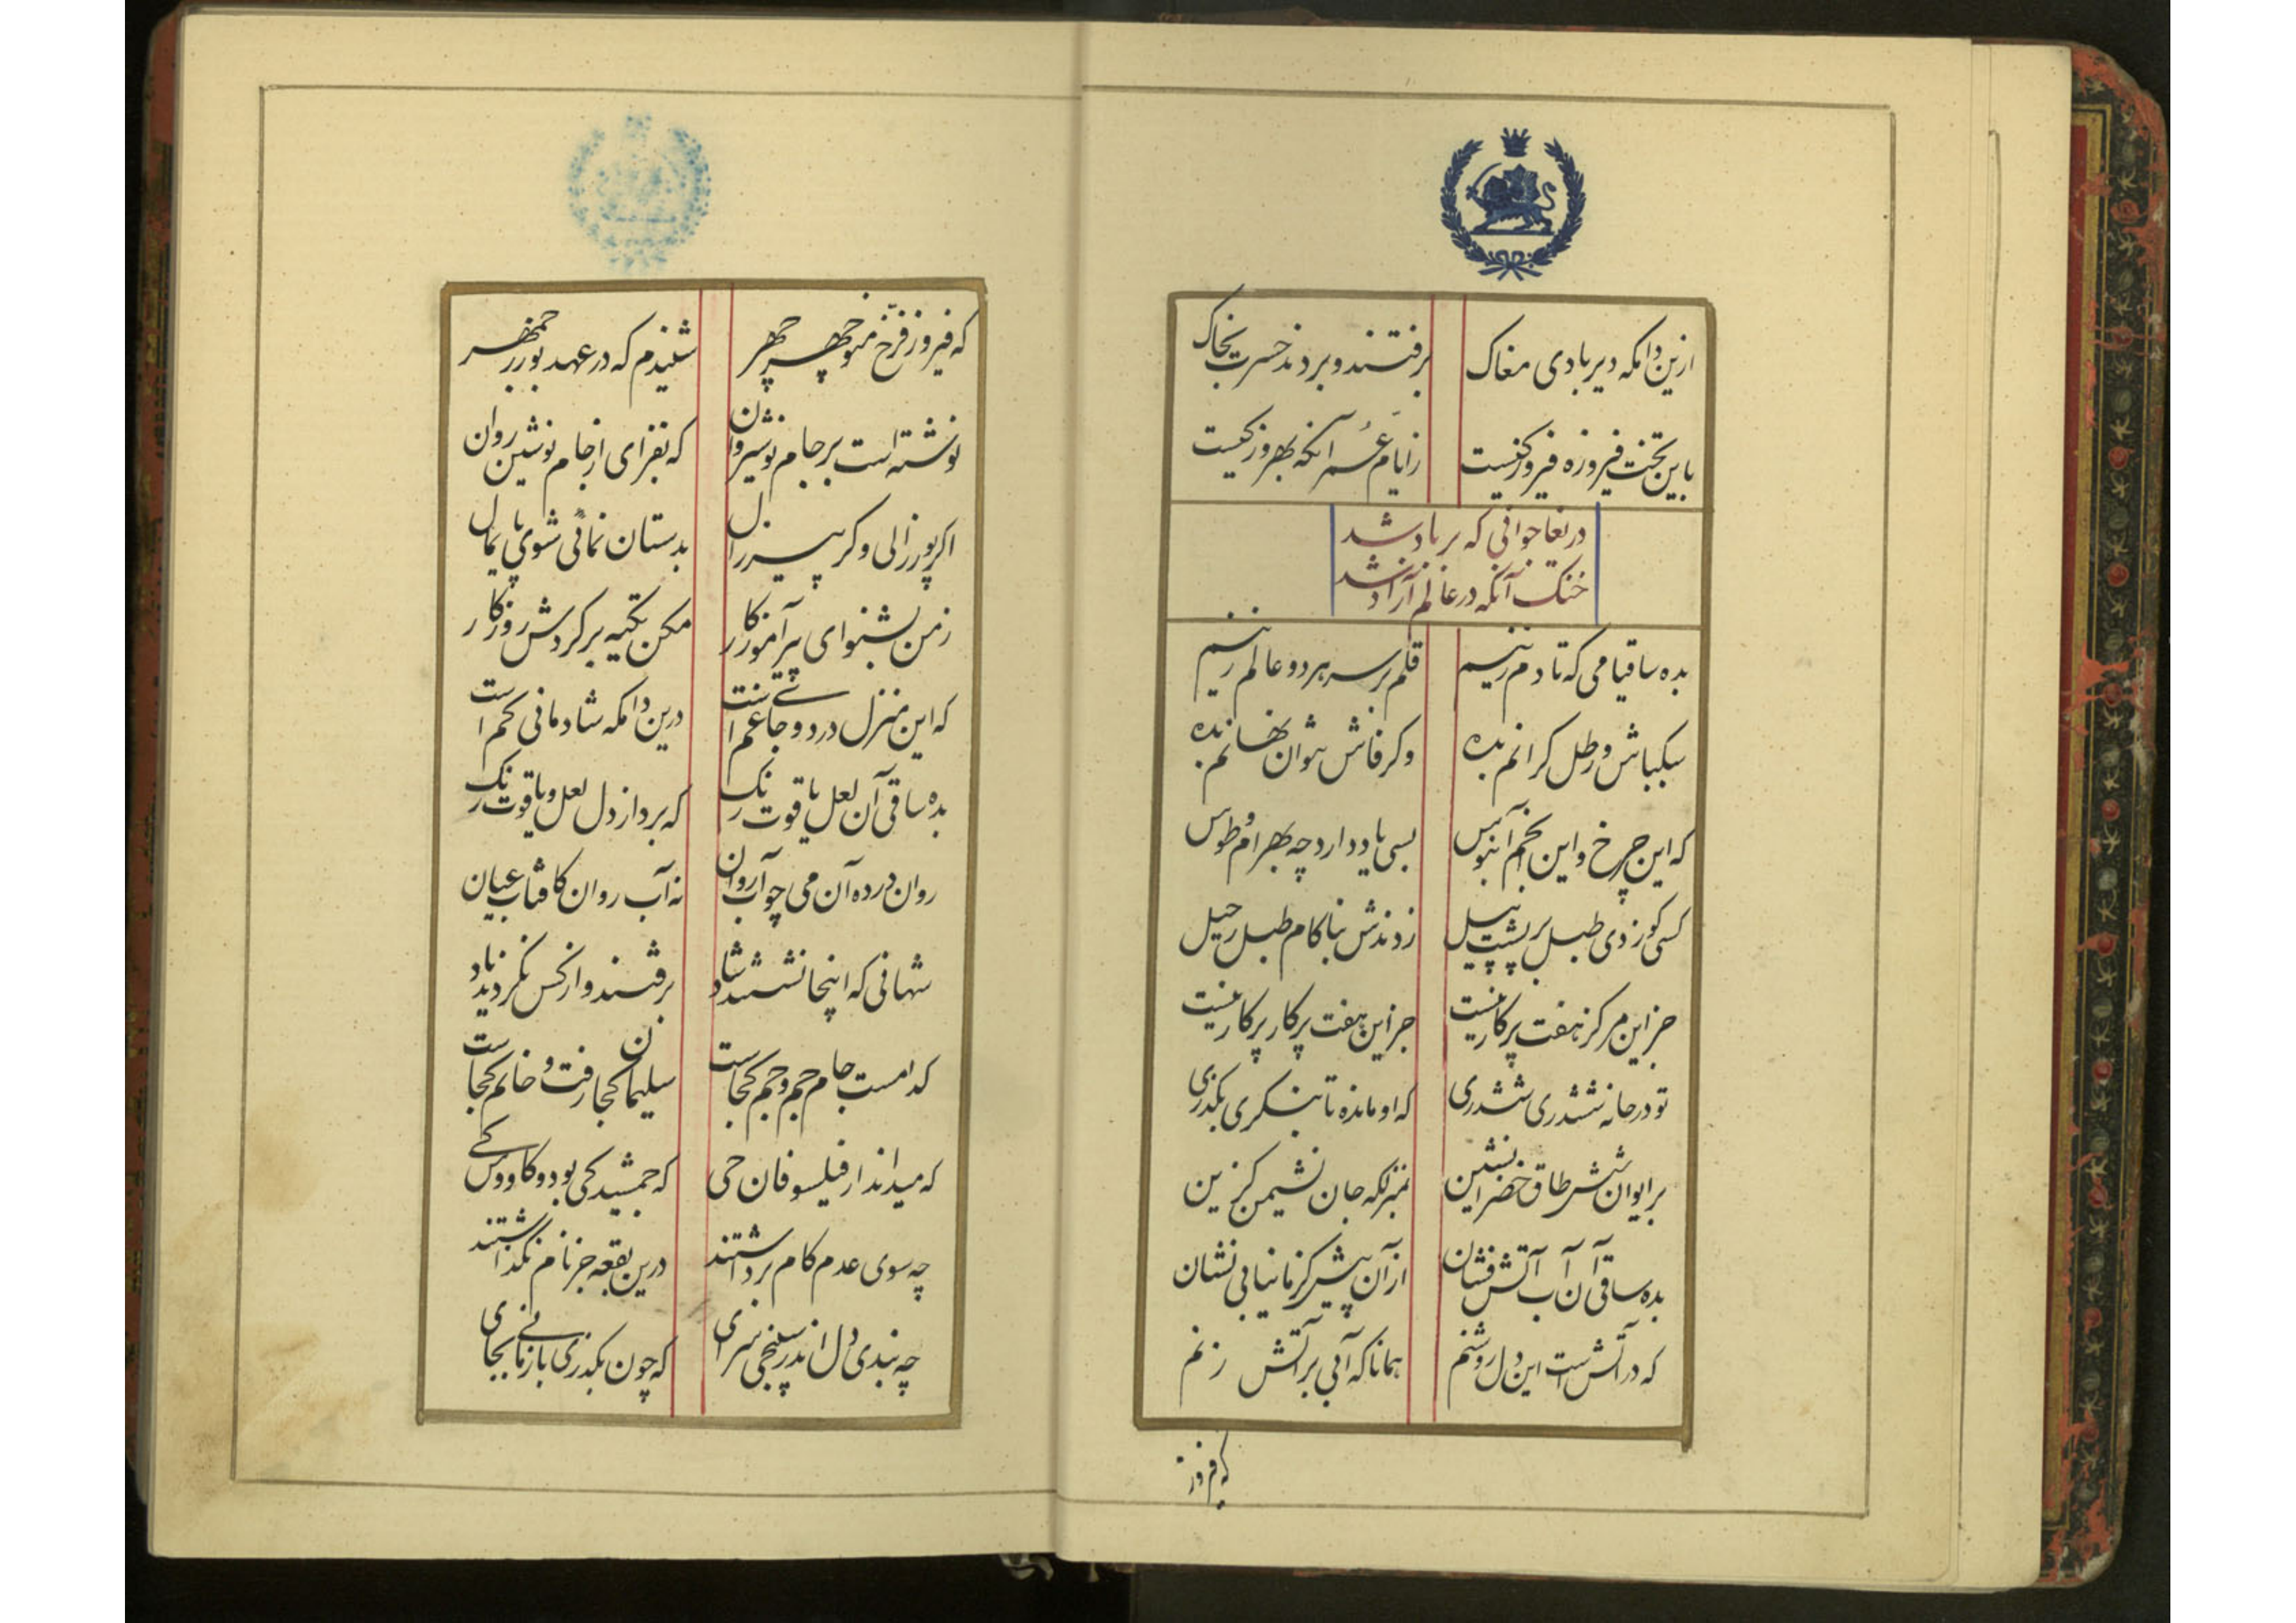 ازین دامکه دیر بادی مغاک برفتند و بردند حسرت بخاک
باین تخت فیروزه فیروز کیست ز ایام عمر آنکه بهروز کیست
دریغا جوانی که بر باد شد
خنک آنکه در عالم آزاد شد
بده ساقیا می که تا دم زنیم قلم بر سر هر دو عالم زنیم
سبکباش و رطل کرانم بده وکر فاش نتوان نهانم بده
که این چرخ و این انجم آبنوس بسی یاد دارد چه بهرام و طوس
کسی کو زدی طبل بر پشت پیل زدندش بناکام طبل رحیل
جز این مرکز هفت پرکار نیست جز این هفت پرکار پرکار نیست
تو در خانه ششدری ششدری که او مانده تا بنکری بکذری
بر ایوان شش طاق خضرا نشین بمنزلکه جان نشیمن کزین
بده ساقی آن آب آتش فشان از آن پیش کز ما نیابی نشان
که در آتش است این دل روشنم همانا که آبی بر آتش زنم
که فیروز
که فیروز فرخ منوچهر چهر شنیدم که در عهد بوزرجمهر
نوشته است بر جام نوشیروان که بفزای از جام نوشین روان
اکر پور زالی وکر پیر زال بدستان نمانی شوی پایمال
ز من بشنو ای پیر آموزکار مکن تکیه بر کردش روزکار
که این منزل درد و جای غم است درین دامکه شادمانی کم است
بده ساقی آن لعل یاقوت رنک که برد از دل لعل و یاقوت رنک
روان در ده آن می چو آب روان نه آب روان کافتاب عیان
شهانی که اینجا نشستند شاد برفتند و از کس نکردند یاد
کدامست جام جم و جم کجاست سلیمان کجا رفت و خاتم کجاست
که میداند از فیلسوفان حی که جمشید کی بود و کاووس کی
چه سوی عدم کام برداشتند درین بقعه جز نام نکذاشتند
چه بندی دل اندر سپنجی سرای که چون بکذری باز مانی بجای